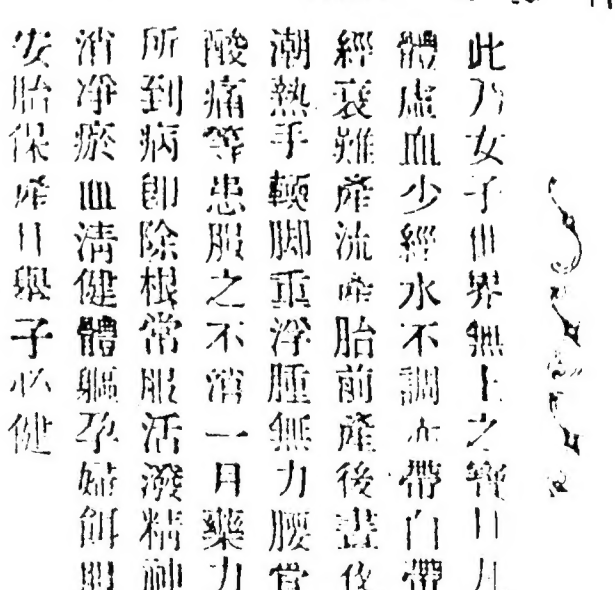 此乃女子世界無上之寶日凡
體虛血少經水不調赤帶白帶
經衰難產流產胎前產後晝夜
潮熱手輭脚重浮腫無力腰當
酸痛等患服之不消一月藥力
所到病即除根常服活潑精神
消淨瘀血清健體軀孕婦餌服
安胎保產日舉子必健